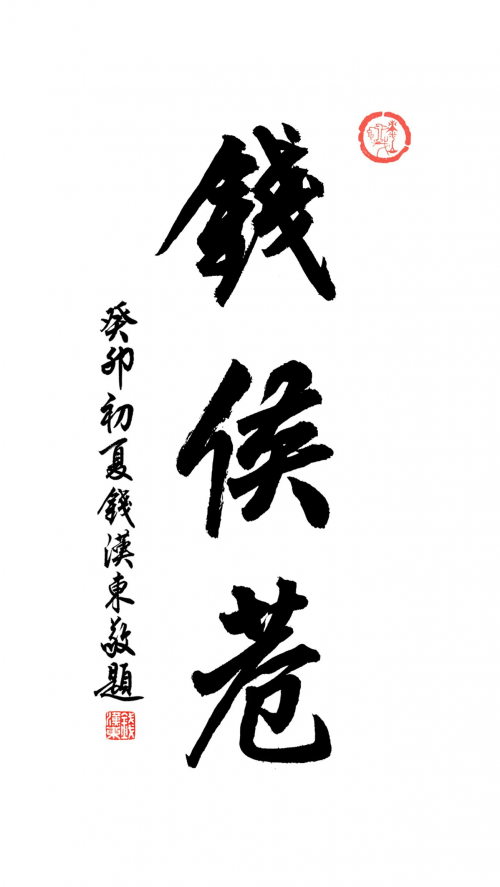 錢侯巷
癸卯初夏錢漢東敬題
錢漢東